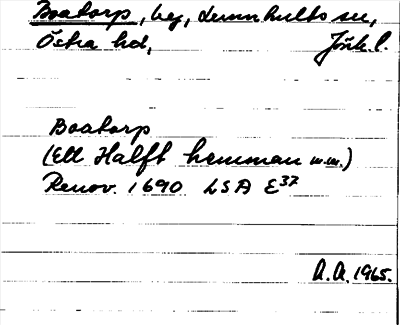 Boatorp, by, Lemnhults sn,
Östra hd, Jönk. l.
Boatorp
(Ett Halft hemman m.m.)
Renov. 1690 LSA E37
A.A. 1965.